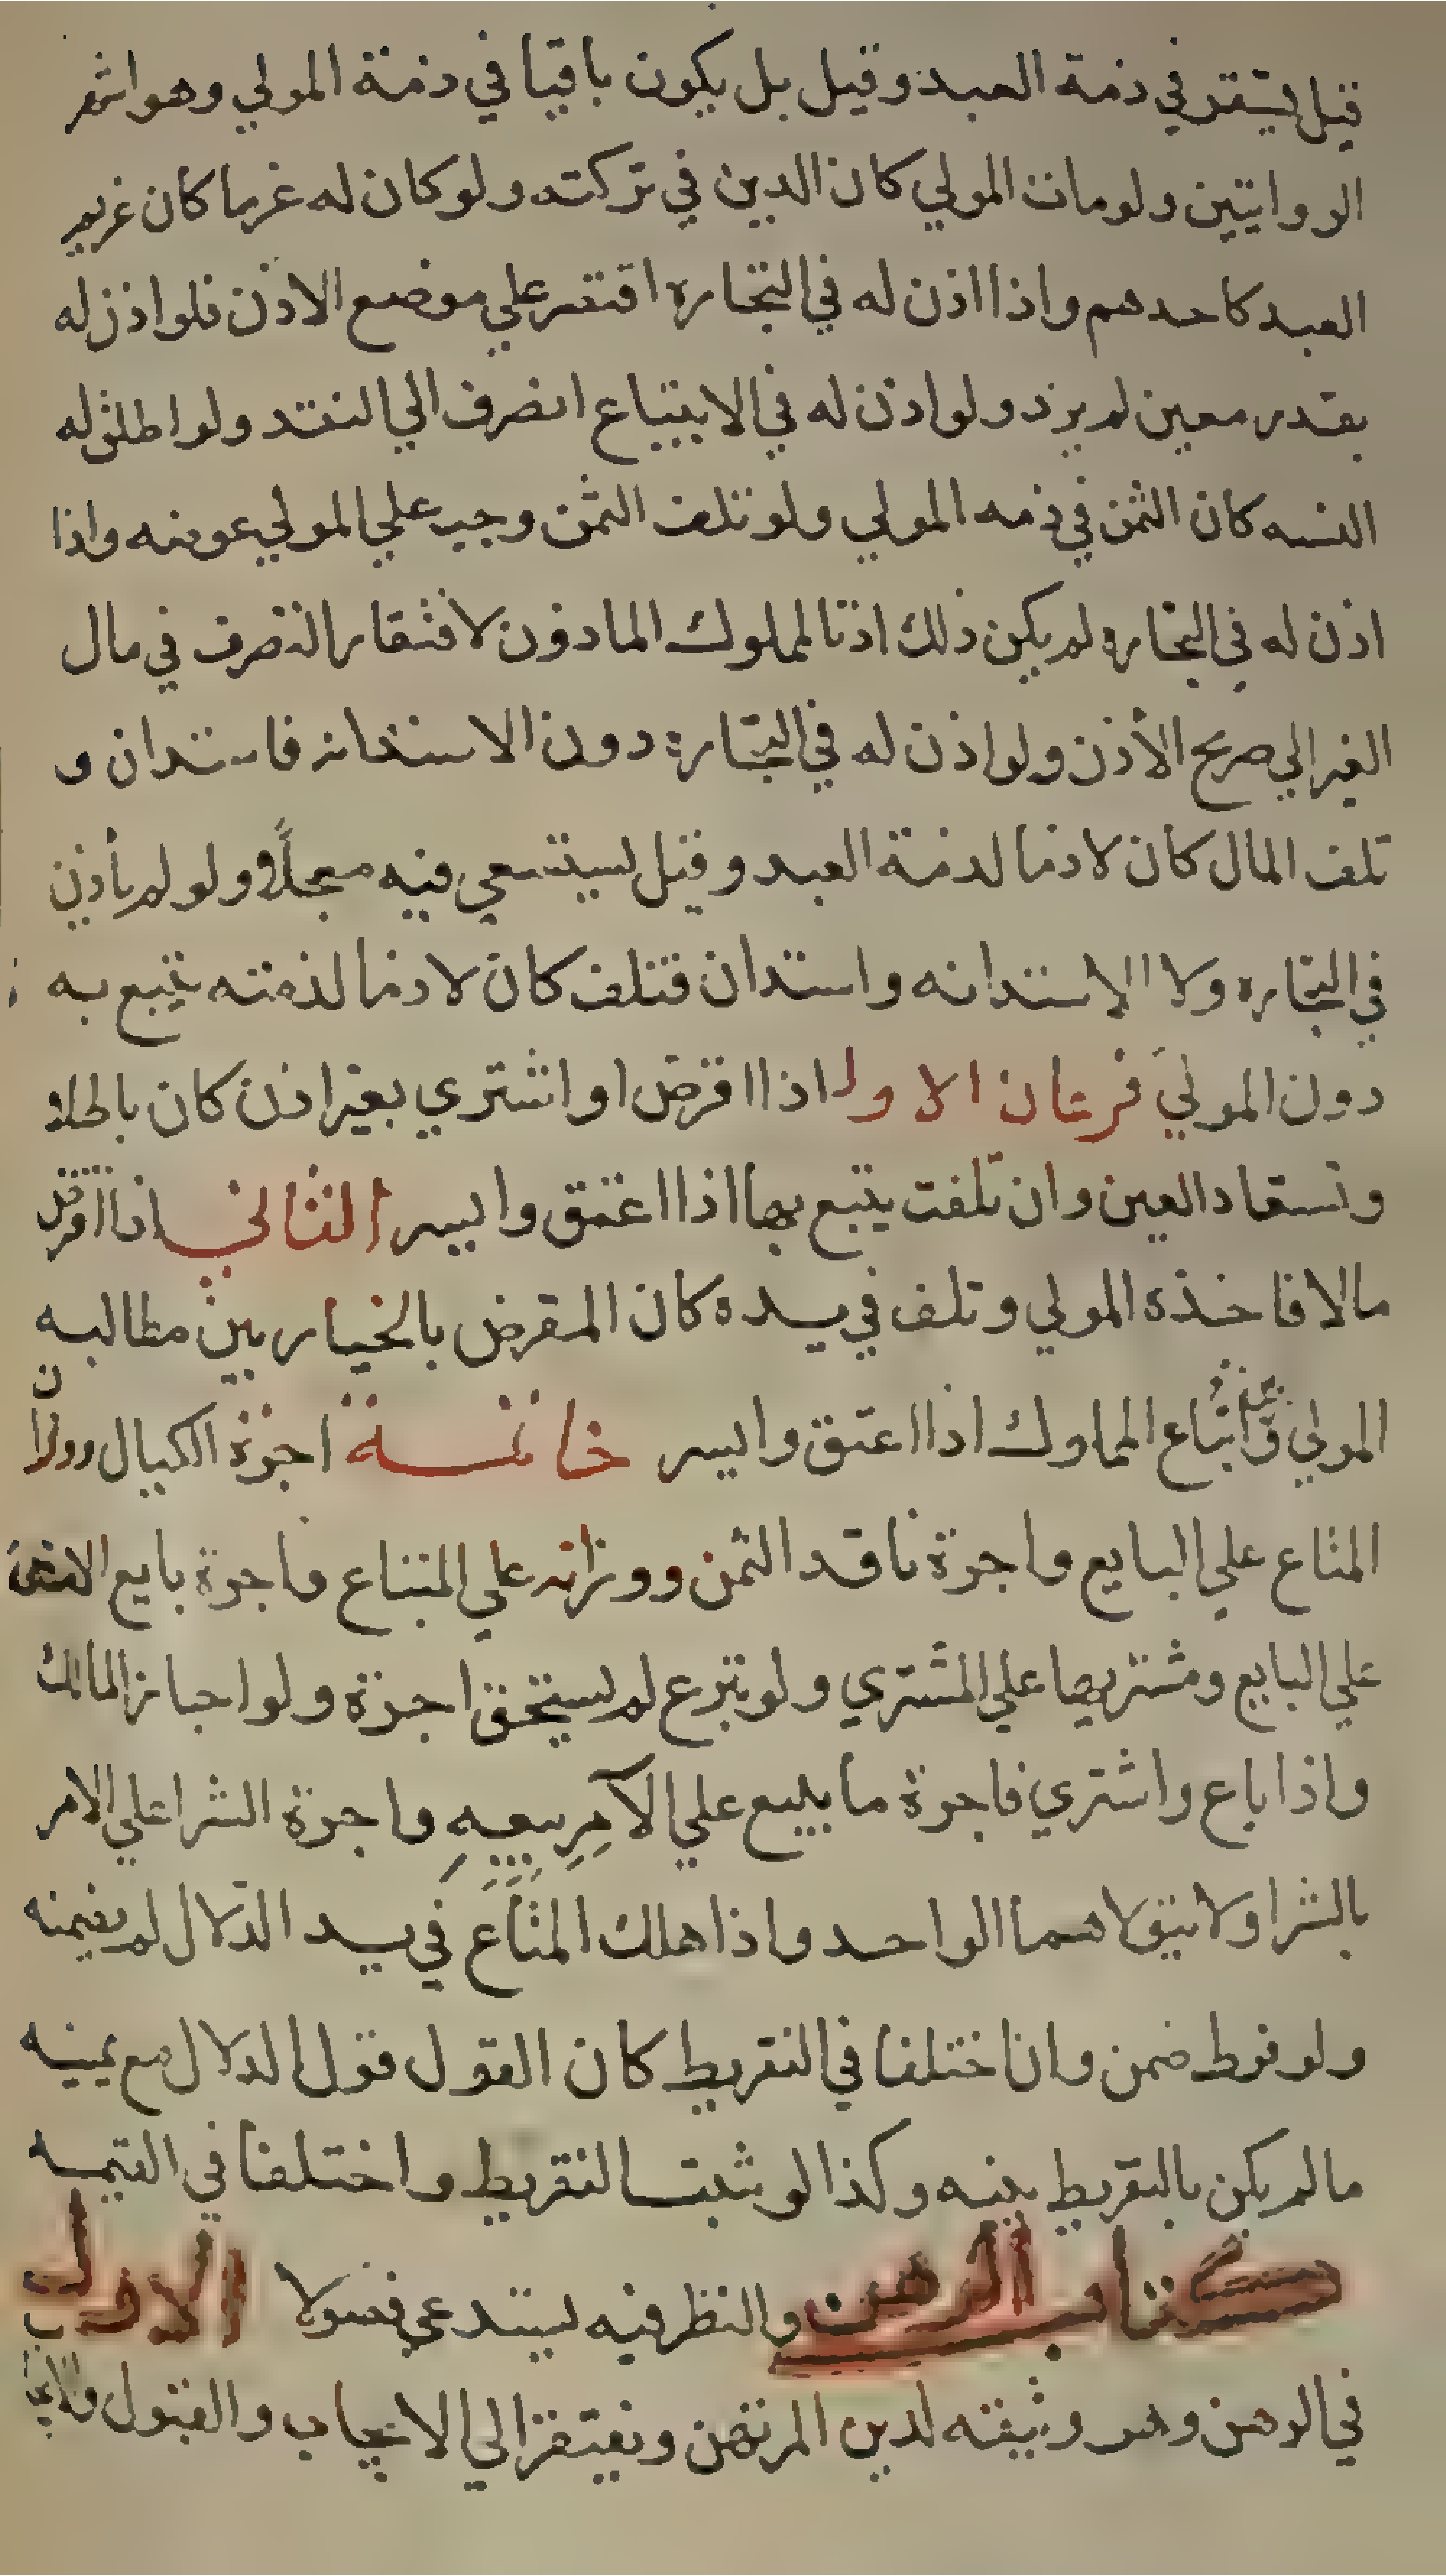 قيل يستقر في ذمة العبد وقيل بل يكون باقيا في ذمة المولي وهو اشهر
الروايتين ولو مات المولي كان الدين في تركته ولو كان له غرما كان غريم
العبد كاحدهم واذا اذن له في التجاره اقتصر علي موضع الاذن فلو اذن له
بقدر معين لم يزد ولو اذن له في الابتياع انصرف الي النقد ولو اطلق له
النسه كان الثمن في ذمه المولي ولو تلف الثمن وجب علي المولي عوضه واذا
اذن له في التجاره لم يكن ذلك اذنا لمملوك الماذون لافتقار التصرف في مال
الغير الي صريح الأذن ولو اذن له في التجارة دون الاستدانه فاستدان و
تلف المال كان لازما لذمة العبد وقيل يستسعي فيه معجلاً ولو لم يأذن
في التجاره ولا الاستدانه واستدان فتلف كان لازما لذمته يتبع به
دون المولي فرعان الاول اذا اقترض او اشتري بغير اذن كان باطلا
وتستعاد العين وان تلفت يتبع بها اذا اعتق وايسر الثاني اذا اقترض
مالا فاخذه المولي وتلف في يده كان المقرض بالخيار بين مطالبه
المولي واتباع المملوك اذا اعتق وايسر خاتمسة اجرة الكيال ووزان
المتاع علي البايع واجرة ناقد الثمن ووزانه علي المبتاع واجرة بايع الامتعه
علي البايع ومشتريها علي المشتري ولو تبرع لم يستحق اجرة ولو اجاز المالك
واذا باع واشتري فاجرة ما يبيع علي الآمر ببيعه واجرة الشرا علي الامر
بالشرا ولا يتولاهما الواحد واذا هلك المتاع في يد الدلال لم يضمنه
ولو فرط ضمن وان اختلفا في التفريط كان القول قول الدلال مع يمينه
ما لم يكن بالتفريط بينه وكذا لو ثبت التفريط واختلفا في القيمه
كتاب الرهن والنظر فيه يستدعي فصولا الاول
في الرهن وهو وثيقته لدين المرتهن ويفتقر الي الايجاب والقبول